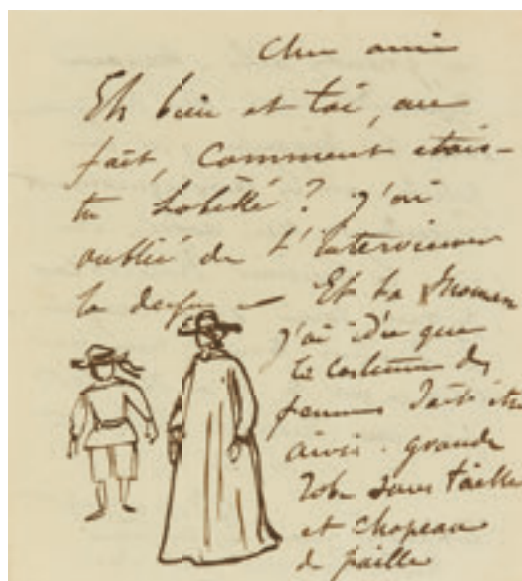 Cher ami
Eh bien et toi, au
fait, comment étais-
tu habillé ? J'ai
oublié de t'interviewer
là dessus — Et ta maman
J'ai idée que
le costume des
femmes doit être
ainsi. grande
robe sans taille
et chapeau
de paille